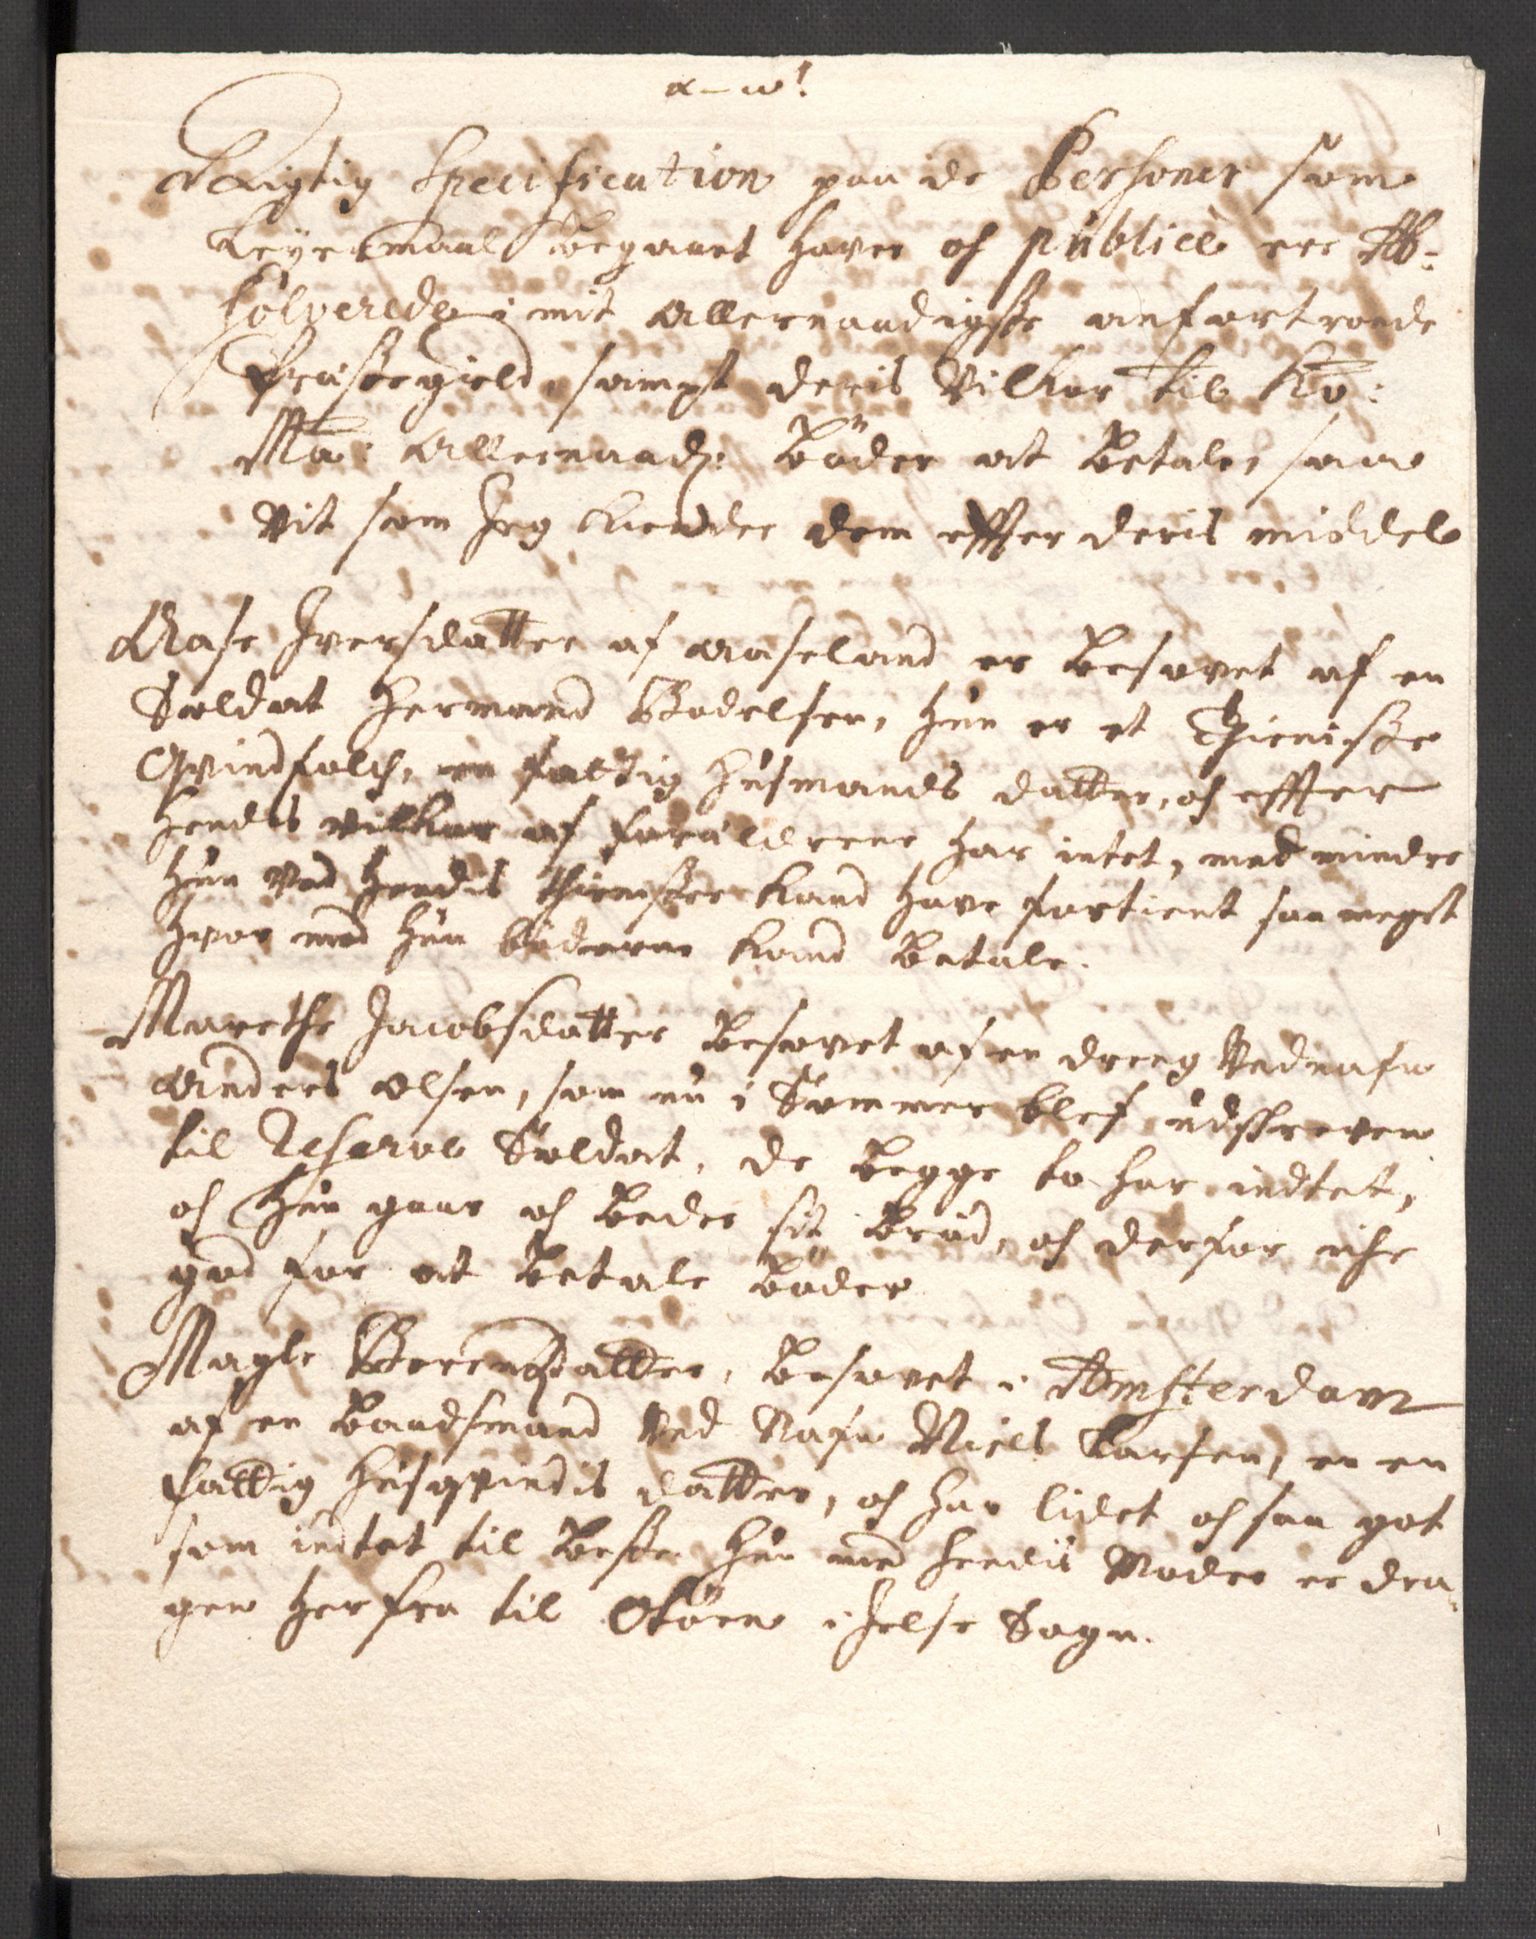 α–ω!
Rigtig Specification paa de Personer som
Leyermaal begaaet haver och publicè ere Ab-
solverede i mit Allernaadigste anfortroede
Præstegield, sampt deris Vilkor til Ko:
Ma: Allernaad: Böder at Betale, saa
vit som Jeg kiender dem effter deris middel
Aase Iversdatter af Aaseland er Besovet af en
Soldat Hermand Bodelsen, hun er et Thieniste
Qvindfolch, en fattig Husmands datter, och effter
hendis vilkor af forælderne har intet, med mindre
hun ved hendis thienister kand have fortient saa megit
hvor med hun böderne kand Betale.
Marethe Jacobsdatter Besovet af en dreng Ved nafn
Anders Olsen, som nu i Sommer blef udschreven
til Reserve Soldat, de begge to har indtet,
och hun gaar och Beder sit Bröd, och derfor iche
god for at Betale Böder
Magle Berentsdatter, Besovet i Amsterdam
af en Baadsmand Ved Nafn Niels Larsen, er en
fattig husqvindis datter, och har lidet och saa got
som indtet til Beste. hun med hendis Moder er dra-
gen her fra til Stören i Jelse Sogn.